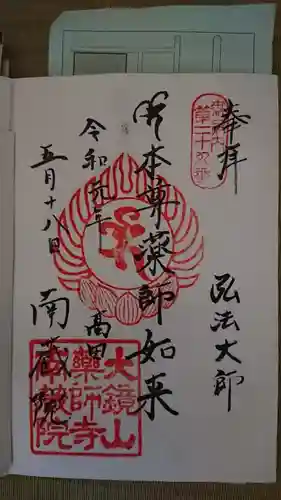 御府内
第二十九番
奉拝
弘法大師
本尊薬師如来
令和元年
五月十八日
高田
南蔵院
大鏡山
薬師寺
南蔵院